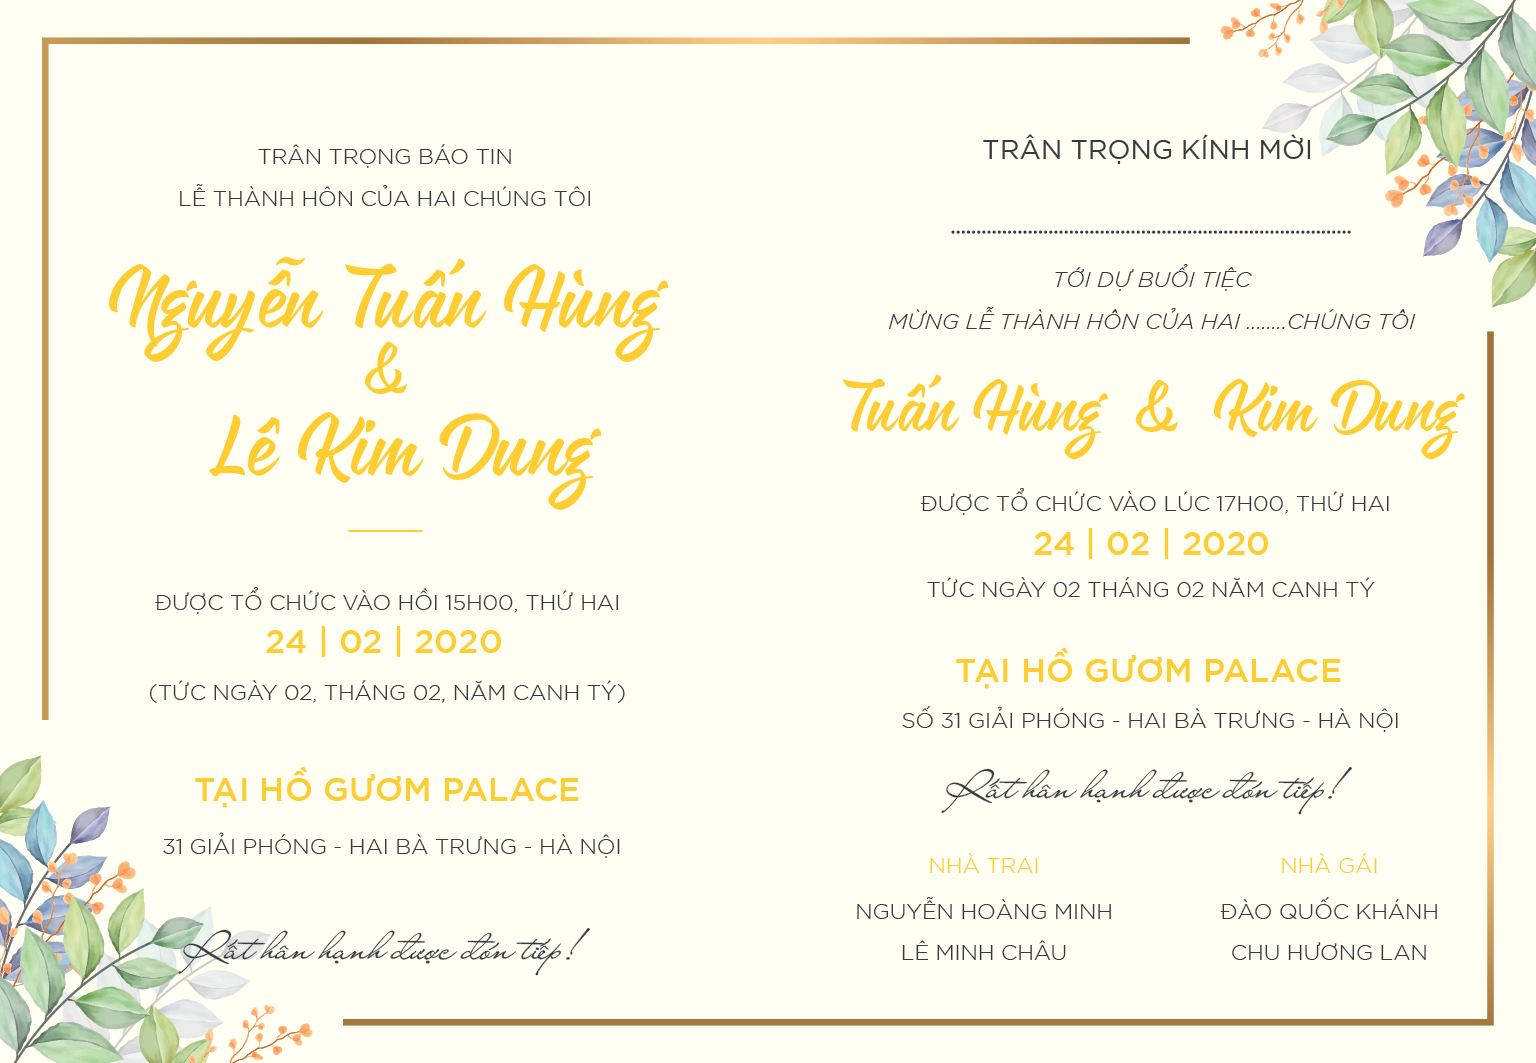 TRÂN TRỌNG BÁO TIN
LỄ THÀNH HÔN CỦA HAI CHÚNG TÔI
Nguyễn Tuấn Hùng
&
Lê Kim Dung
ĐƯỢC TỔ CHỨC VÀO HỒI 15H00, THỨ HAI
24 | 02 | 2020
(TỨC NGÀY 02, THÁNG 02, NĂM CANH TÝ)
TẠI HỒ GƯƠM PALACE
31 GIẢI PHÓNG - HAI BÀ TRƯNG - HÀ NỘI
Rất hân hạnh được đón tiếp!
TRÂN TRỌNG KÍNH MỜI
................................................................................
TỚI DỰ BUỔI TIỆC
MỪNG LỄ THÀNH HÔN CỦA HAI ........CHÚNG TÔI
Tuấn Hùng & Kim Dung
ĐƯỢC TỔ CHỨC VÀO LÚC 17H00, THỨ HAI
24 | 02 | 2020
TỨC NGÀY 02 THÁNG 02 NĂM CANH TÝ
TẠI HỒ GƯƠM PALACE
SỐ 31 GIẢI PHÓNG - HAI BÀ TRƯNG - HÀ NỘI
Rất hân hạnh được đón tiếp!
NHÀ TRAI
NGUYỄN HOÀNG MINH
LÊ MINH CHÂU
NHÀ GÁI
ĐÀO QUỐC KHÁNH
CHU HƯƠNG LAN